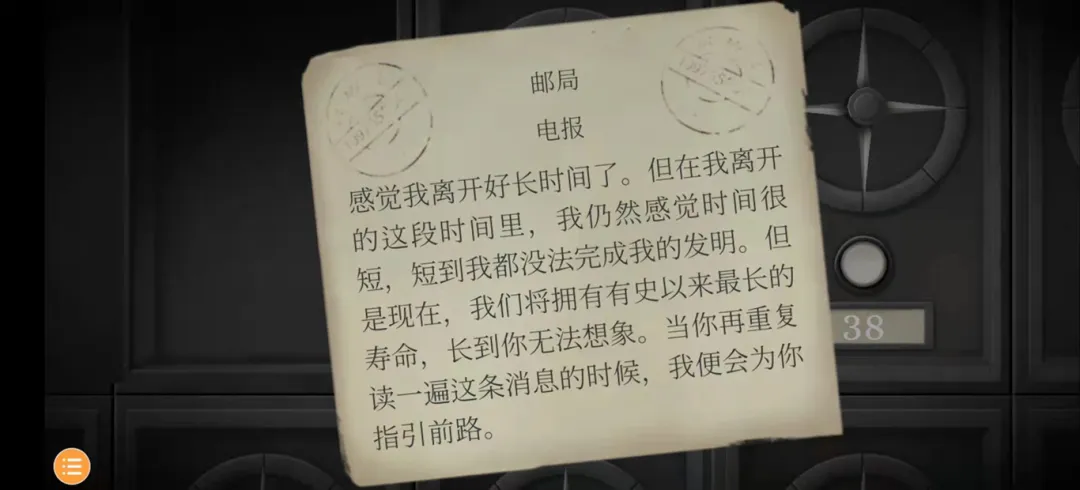 邮局
电报
感觉我离开好长时间了。但在我离开
的这段时间里，我仍然感觉时间很
短，短到我都没法完成我的发明。但
是现在，我们将拥有有史以来最长的
寿命，长到你无法想象。当你再重复
读一遍这条消息的时候，我便会为你
指引前路。
38